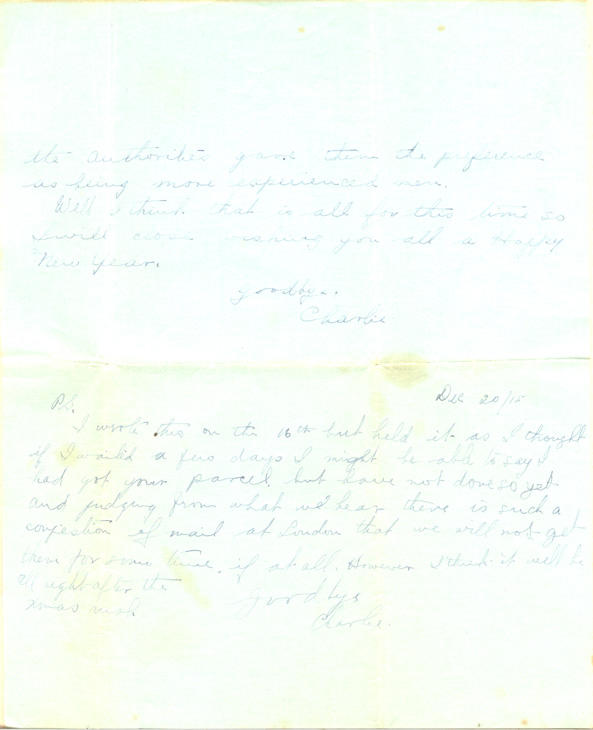 the authorities gave them the preference
as being more experienced men.
Well I think that is all for this time so
I will close wishing you all a Happy
New Year.
goodbye.
Charlie
P.S.
Dec 20/15
I wrote this on the 16th but held it as I thought
if I waited a few days I might be able to say I
had got your parcel but have not done so yet
and judging from what we hear there is such a
congestion of mail at London that we will not get
them for some time, if at all. However I think it will be
all right after the
xmas rush
Goodbye
Charlie.